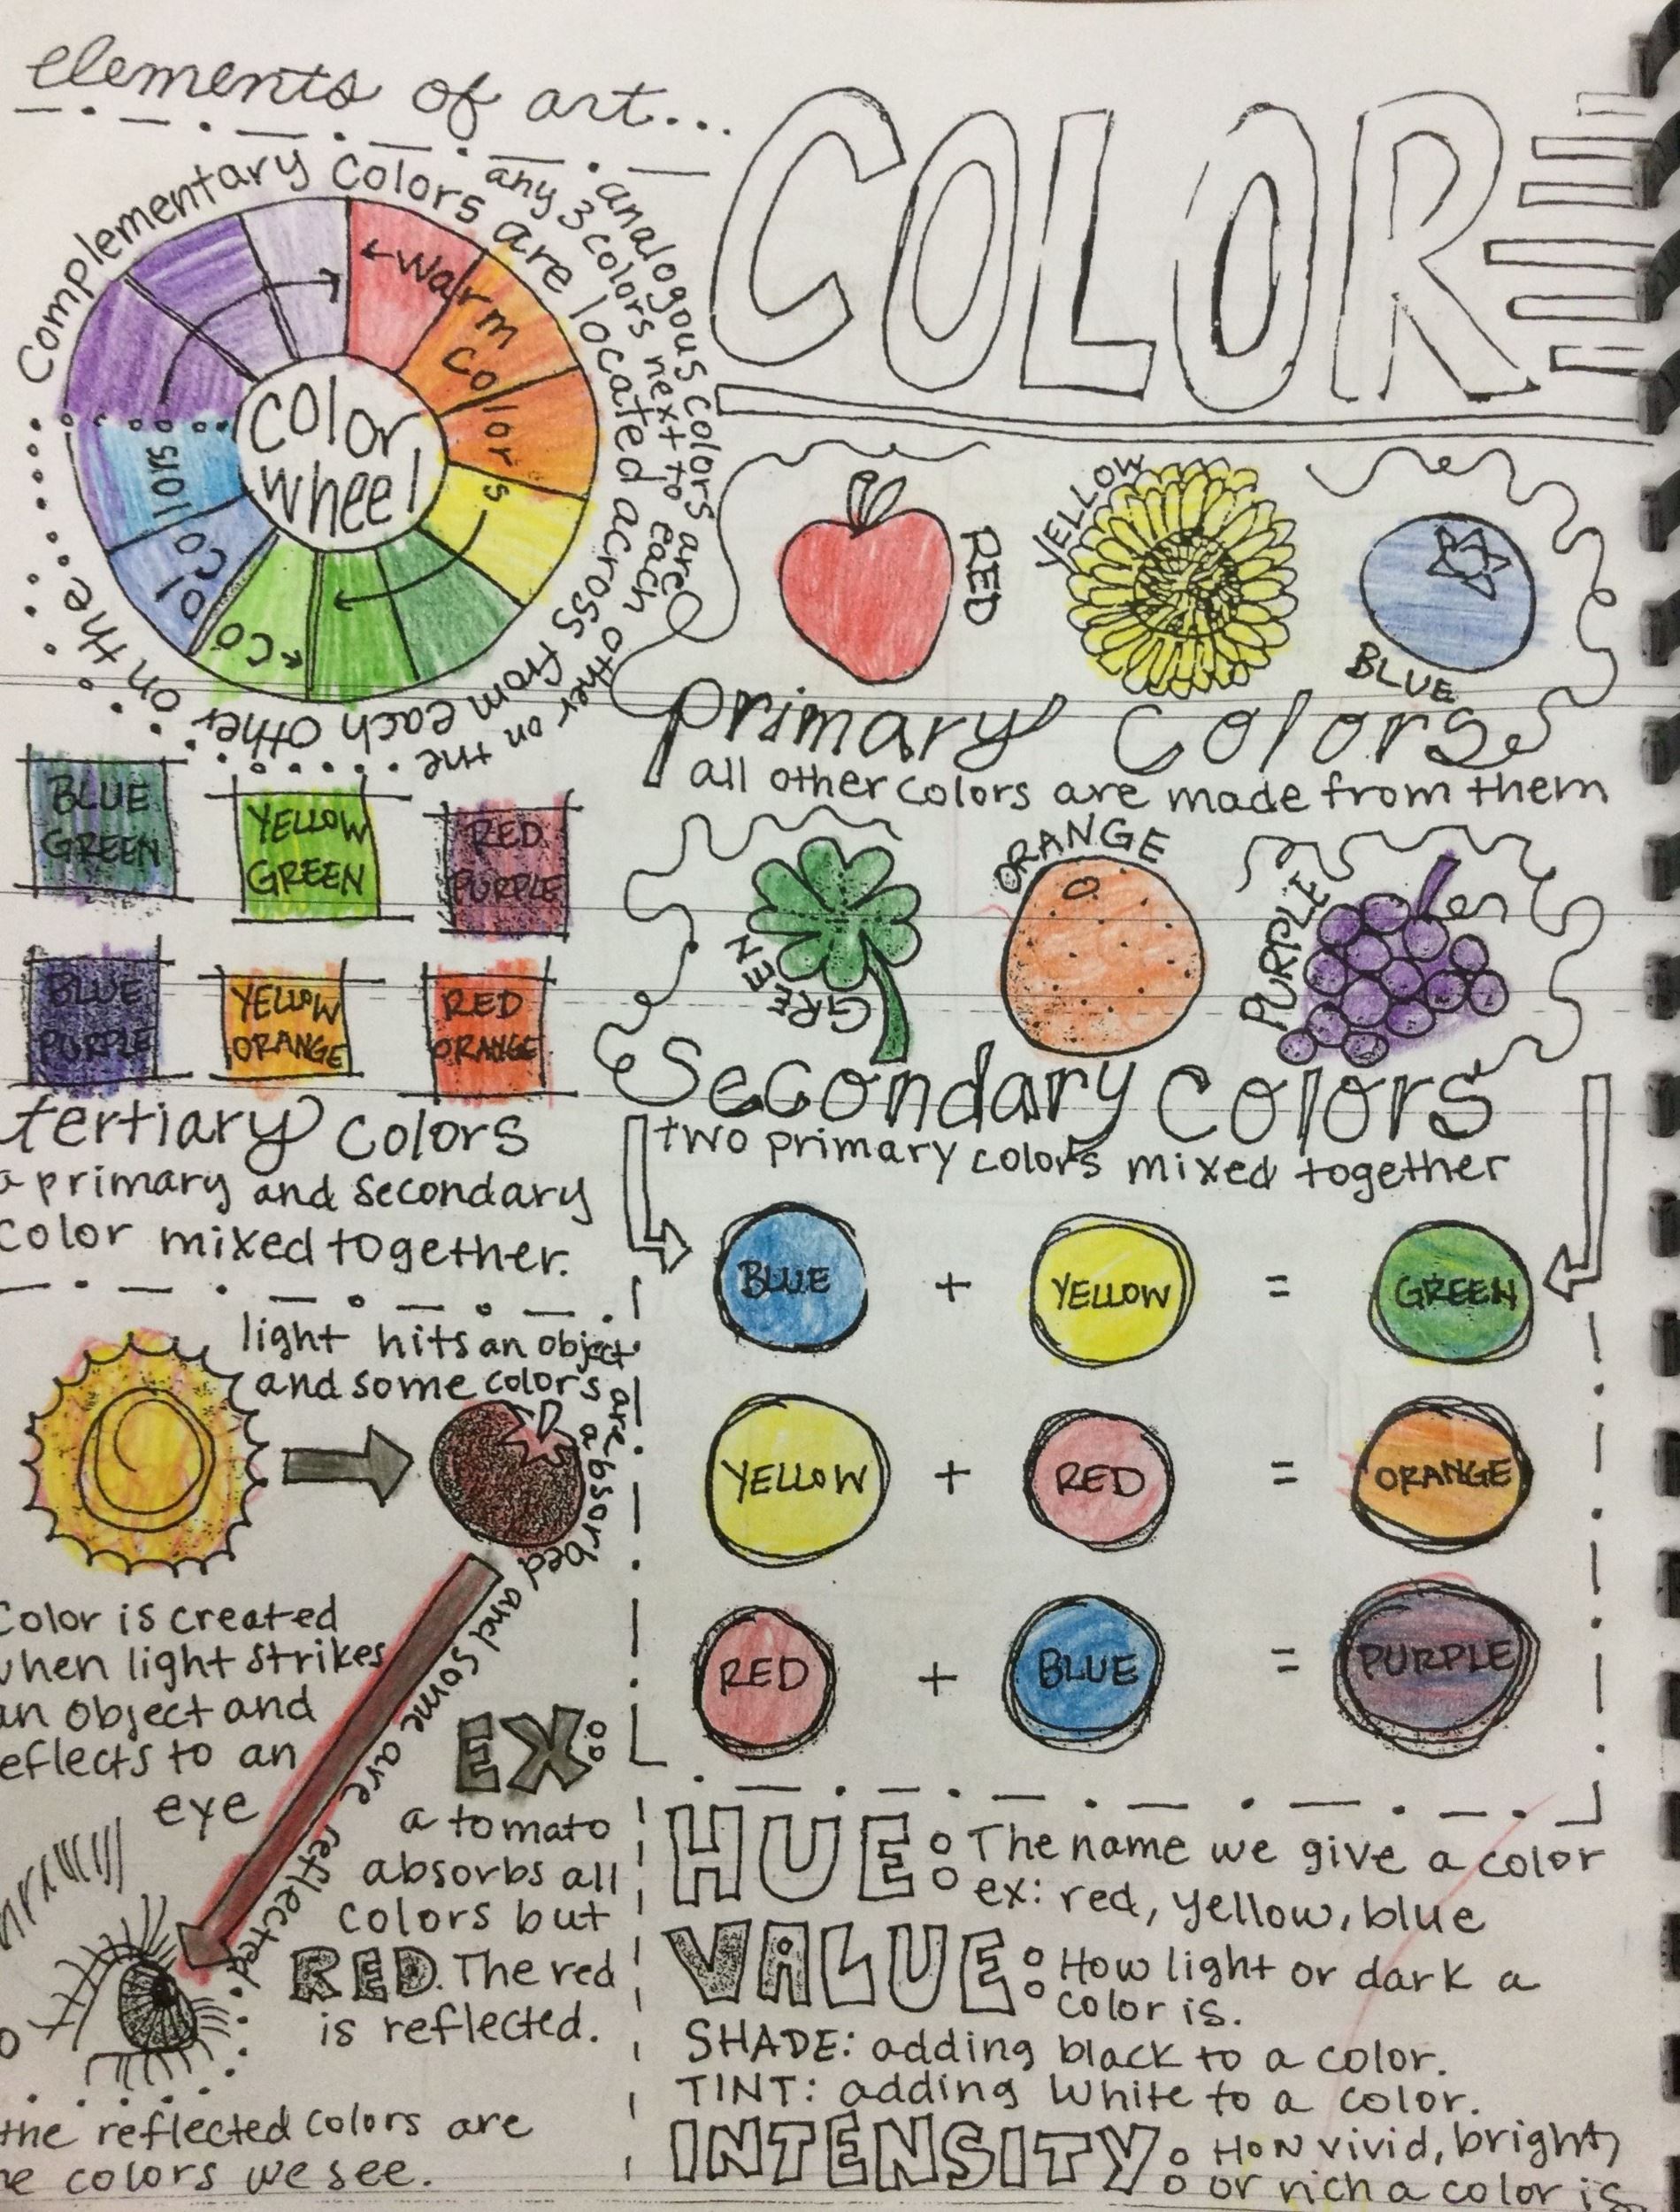 elements of art...
COLOR
Complementary colors are located across from each other on the
analogous colors are
any 3 colors next to each other on the
← warm colors
cool colors
color
wheel
RED
YELLOW
BLUE
primary colors
all other colors are made from them
BLUE
GREEN
YELLOW
GREEN
RED
PURPLE
BLUE
PURPLE
YELLOW
ORANGE
RED
ORANGE
tertiary colors
a primary and secondary
color mixed together.
GREEN
ORANGE
PURPLE
Secondary colors
two primary colors mixed together
BLUE + YELLOW = GREEN
YELLOW + RED = ORANGE
RED + BLUE = PURPLE
light hits an object
and some colors are absorbed and some are reflected
Color is created
when light strikes
an object and
eflects to an
eye
EX:
a tomato
absorbs all
colors but
RED. The red
is reflected.
the reflected colors are
he colors we see.
HUE: The name we give a color
ex: red, yellow, blue
VALUE: How light or dark a
color is.
SHADE: adding black to a color.
TINT: adding white to a color.
INTENSITY: How vivid, bright,
or rich a color is